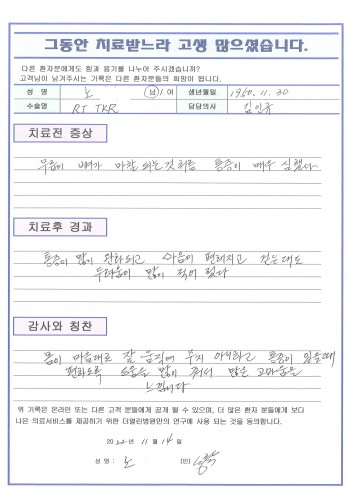 그동안 치료받느라 고생 많으셨습니다.
다른 환자분에게도 힘과 용기를 나누어 주시겠습니까?
고객님이 남겨주시는 기록은 다른 환자분들의 희망이 됩니다.
성 명 노 남 / 여 생년월일 1950. 11. 30
수술명 RT TKR 담당의사 김인규
치료전 증상
무릎이 뼈가 마찰 되는것 처럼 통증이 매우 심했다
치료후 경과
통증이 많이 완화되고 마음이 편해지고 걷는데도
두려움이 많이 적어 졌다
감사와 칭찬
몸이 마음대로 잘 움직여 주지 아니하고 통증이 있을때
편하도록 도움을 많이 줘서 많은 고마움을
느낍니다
위 기록은 온라인 또는 다른 고객 분들에게 공개 될 수 있으며, 더 많은 환자 분들에게 보다
나은 의료서비스를 제공하기 위한 더열린병원만의 연구에 사용 되는 것을 동의합니다.
2022 년 11 월 14 일
성 명 : 노 (인)